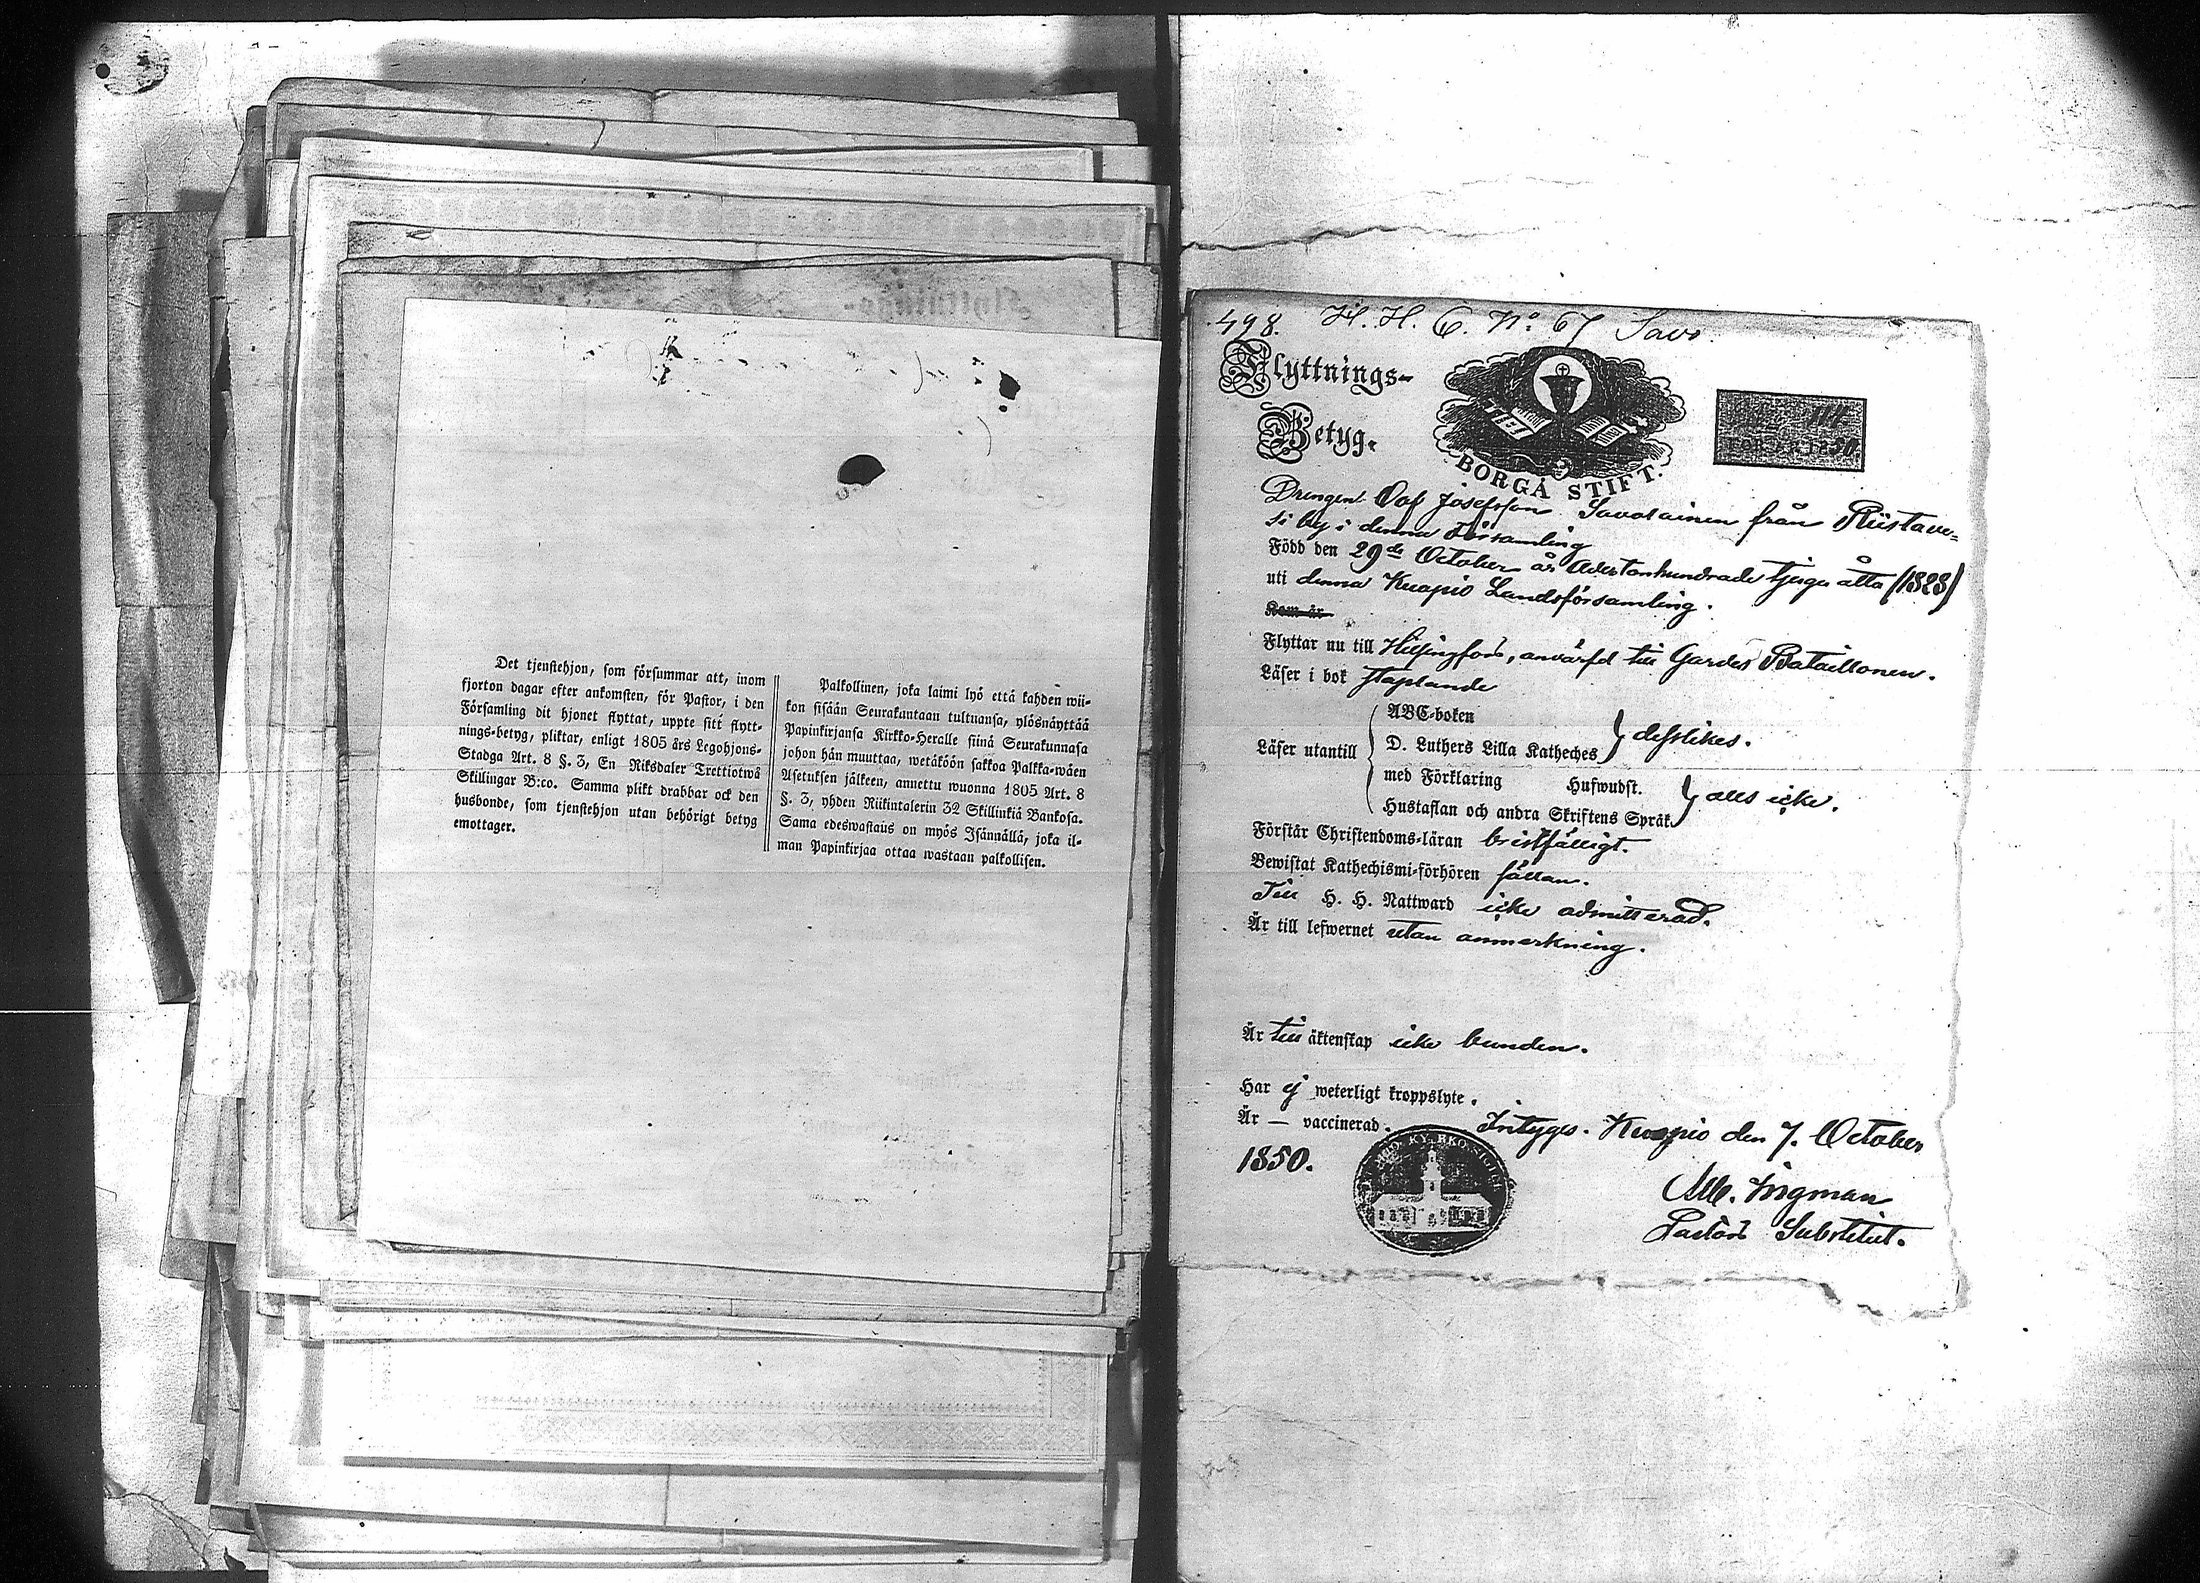 Det tjenstehjon, som försummar att, inom
fjorton dagar efter ankomsten, för Pastor, i den
Församling dit hjonet flyttat, uppte sitt flytt-
nings-betyg, pliktar, enligt 1805 års Legohjons-
Stadga Art. 8 §. 3, En Riksdaler Trettiotwå
Skillingar B:co. Samma plikt drabbar ock den
husbonde, som tjenstehjon utan behörigt betyg
emottager.
Palkollinen, joka laimi lyö että kahden wii-
kon sisään Seurakuntaan tultuansa, ylösnäyttää
Papinkirjansa Kirkko-Heralle siinä Seurakunnasa
johon hän muuttaa, wetäköön sakkoa Palkka-wäen
Asetuksen jälkeen, annettu wuonna 1805 Art. 8
§. 3, yhden Riikintalerin 32 Skillinkiä Bankosa.
Sama edeswastaus on myös Isännällä, joka il-
man Papinkirjaa ottaa wastaan palkollisen.
498. H. H. C. No 67 Savo.
Flyttnings-
Betyg.
BORGÅ STIFT.
Drengen Olof Josefsson Savolainen från Riistave-
si by i denna Församling
Född den 29de October år Adertonhundrade tjugu åtta (1828)
uti denna Kuopio Landsförsamling.
Kom år
Flyttar nu till Helsingfors, anvärfd till Gardes Bataillonen.
Läser i bok staplande
ABC-boken
Läser utantill D. Luthers Lilla Katheches desslikes.
med Förklaring Hufwudst.
Hustaflan och andra Skriftens Språk alls icke.
Förstår Christendoms-läran bristfälligt.
Bewistat Kathechismi-förhören sällan.
Till H. H. Nattward icke admitterad.
Är till lefwernet utan anmerkning.
Är till äktenskap icke bunden.
Har ej weterligt kroppslyte.
Är — vaccinerad. Intygas. Kuopio den 7. October
1850.
KYRKO SIGILL
Alb. Ingman
Pastors Substitut.